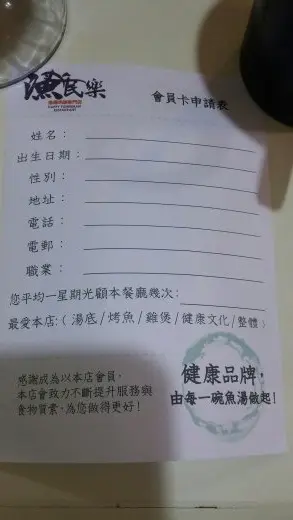 漁民樂
會員卡申請表
姓名：
出生日期：
性別：
地址：
電話：
電郵：
職業：
您平均一星期光顧本餐廳幾次：
最愛本店：( 湯底 / 烤魚 / 雞煲 / 健康文化 / 整體 )
感謝成為以本店會員，
本店會致力不斷提升服務與
食物質素，為您做得更好！
健康品牌，
由每一碗魚湯做起！